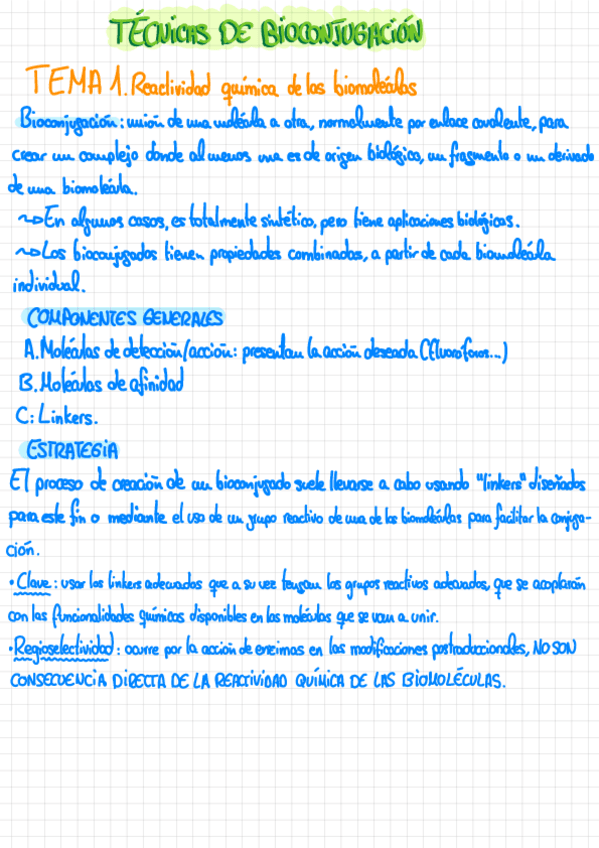 TÉCNICAS DE BIOCONJUGACIÓN
TEMA 1. Reactividad química de las biomoléculas
Bioconjugación: unión de una molécula a otra, normalmente por enlace covalente, para
crear un complejo donde al menos una es de origen biológico, un fragmento o un derivado
de una biomolécula.
~> En algunos casos, es totalmente sintético, pero tiene aplicaciones biológicas.
~> Los bioconjugados tienen propiedades combinadas, a partir de cada biomolécula
individual.
COMPONENTES GENERALES
A. Moléculas de detección/acción: presentan la acción deseada (Fluoroforos...)
B. Moléculas de afinidad
C: Linkers.
ESTRATEGIA
El proceso de creación de un bioconjugado suele llevarse a cabo usando "linkers" diseñados
para este fin o mediante el uso de un grupo reactivo de una de las biomoléculas para facilitar la conjuga-
ción.
· Clave: usar los linkers adecuados que a su vez tengan los grupos reactivos adecuados, que se acoplarán
con las funcionalidades químicas disponibles en las moléculas que se van a unir.
· Regioselectividad: ocurre por la acción de enzimas en las modificaciones postraduccionales, NO SON
CONSECUENCIA DIRECTA DE LA REACTIVIDAD QUÍMICA DE LAS BIOMOLÉCULAS.